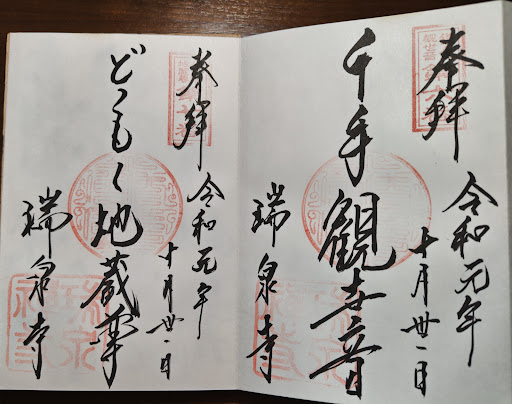 奉拜
令和元年
十月卅一日
千手觀世音
瑞泉寺
奉拜
令和元年
十月卅一日
どこもく地蔵尊
瑞泉寺